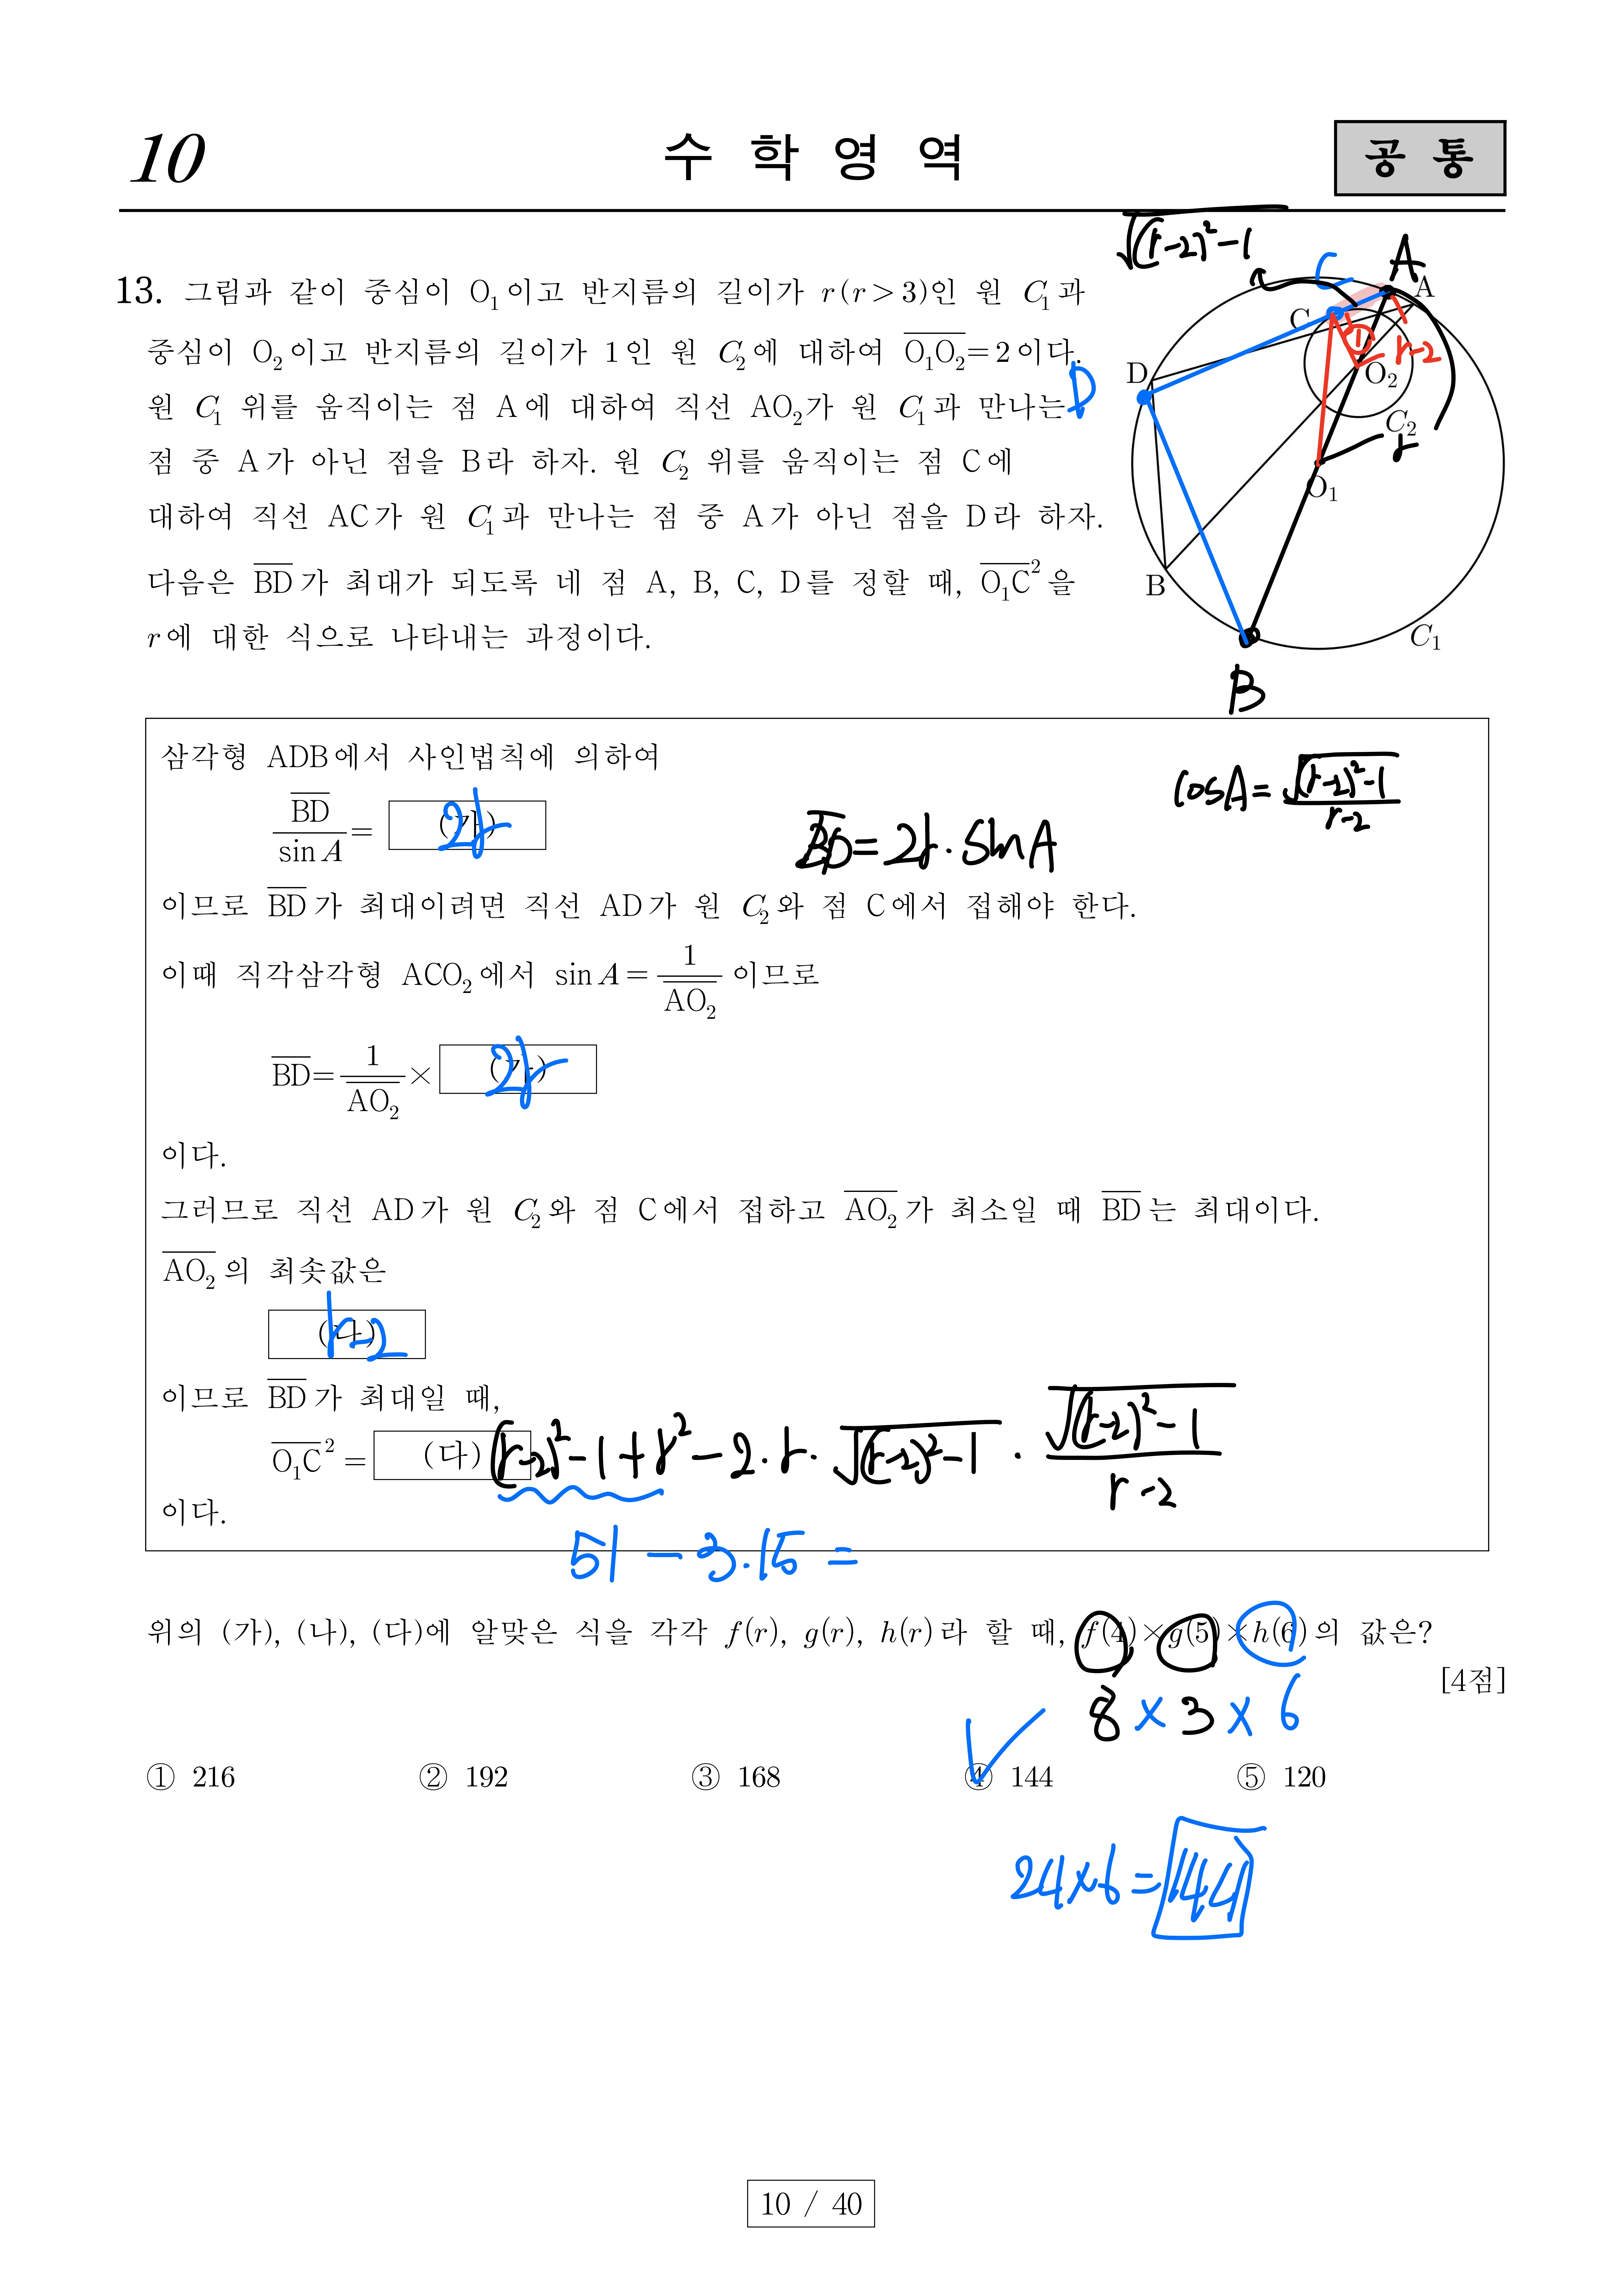 10
수 학 영 역
공 통
√((r-2)²-1)
13. 그림과 같이 중심이 O₁이고 반지름의 길이가 r(r>3)인 원 C₁과
중심이 O₂이고 반지름의 길이가 1인 원 C₂에 대하여 O₁O₂=2이다.
원 C₁ 위를 움직이는 점 A에 대하여 직선 AO₂가 원 C₁과 만나는
점 중 A가 아닌 점을 B라 하자. 원 C₂ 위를 움직이는 점 C에
대하여 직선 AC가 원 C₁과 만나는 점 중 A가 아닌 점을 D라 하자.
다음은 BD가 최대가 되도록 네 점 A, B, C, D를 정할 때, O₁C²을
r에 대한 식으로 나타내는 과정이다.
C A
A
C
1 r-2
D
O₂
D
C₂
r
O₁
B
C₁
B
삼각형 ADB에서 사인법칙에 의하여
cosA = √((r-2)²-1) / (r-2)
BD/sin A = (가) 2r
BD = 2r·sinA
이므로 BD가 최대이려면 직선 AD가 원 C₂와 점 C에서 접해야 한다.
이때 직각삼각형 ACO₂에서 sin A = 1/AO₂ 이므로
BD = 1/AO₂ × (가) 2r
이다.
그러므로 직선 AD가 원 C₂와 점 C에서 접하고 AO₂가 최소일 때 BD는 최대이다.
AO₂의 최솟값은
(나) r-2
이므로 BD가 최대일 때,
O₁C² = (다) (r-2)²-1+r²-2·r·√((r-2)²-1)·√((r-2)²-1)/(r-2)
이다.
51-3·15=
위의 (가), (나), (다)에 알맞은 식을 각각 f(r), g(r), h(r)라 할 때, f(4)×g(5)×h(6)의 값은?
[4점]
8×3×6
① 216 ② 192 ③ 168 ④ 144 ⑤ 120
24×6=144
10 / 40